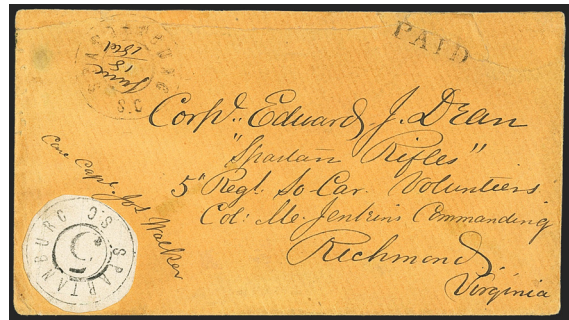 SPARTANBURG S.C.
June
18
1861
PAID
Corp'l. Edward J. Dean
"Spartan Rifles"
5" Regt. So Car. Volunteers
Col: M. Jenkins Commanding
Richmond
Virginia
Care Capt. Jos Walker
SPARTANBURG S.C.
5